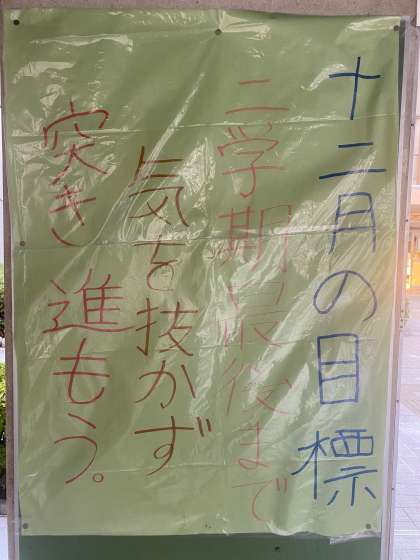 十二月の目標
二学期最後まで
気を抜かず
突き進もう。